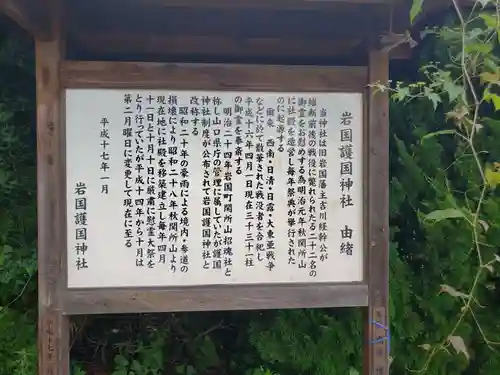 岩国護国神社　由緒
当神社は旧岩国藩主吉川経幹公が
維新前後の戦役に斃れられたる二十二名の
御霊をお慰めする為明治元年秋関所山
に社殿を造営し毎年祭典が挙行された
のに起源する
爾来　西南・日清・日露・大東亜戦争
などに於て散華された戦没者を合祀し
平成十六年四月一日現在で三千三十一柱
の御霊を奉斎する
明治二十四年岩国町関所山招魂社と
称し山口県庁の管理に属していたが護国
神社制度が公布されて岩国護国神社と
改称する
昭和二十年の豪雨による境内・参道の
損壊により昭和二十八年秋関所山より
現在地に社殿を移築建立し毎年四月
十一日と十月十日に厳粛に慰霊大祭を
とり行っていたが平成十四年から十月は
第二月曜日に変更して現在に至る
平成十七年一月
岩国護国神社